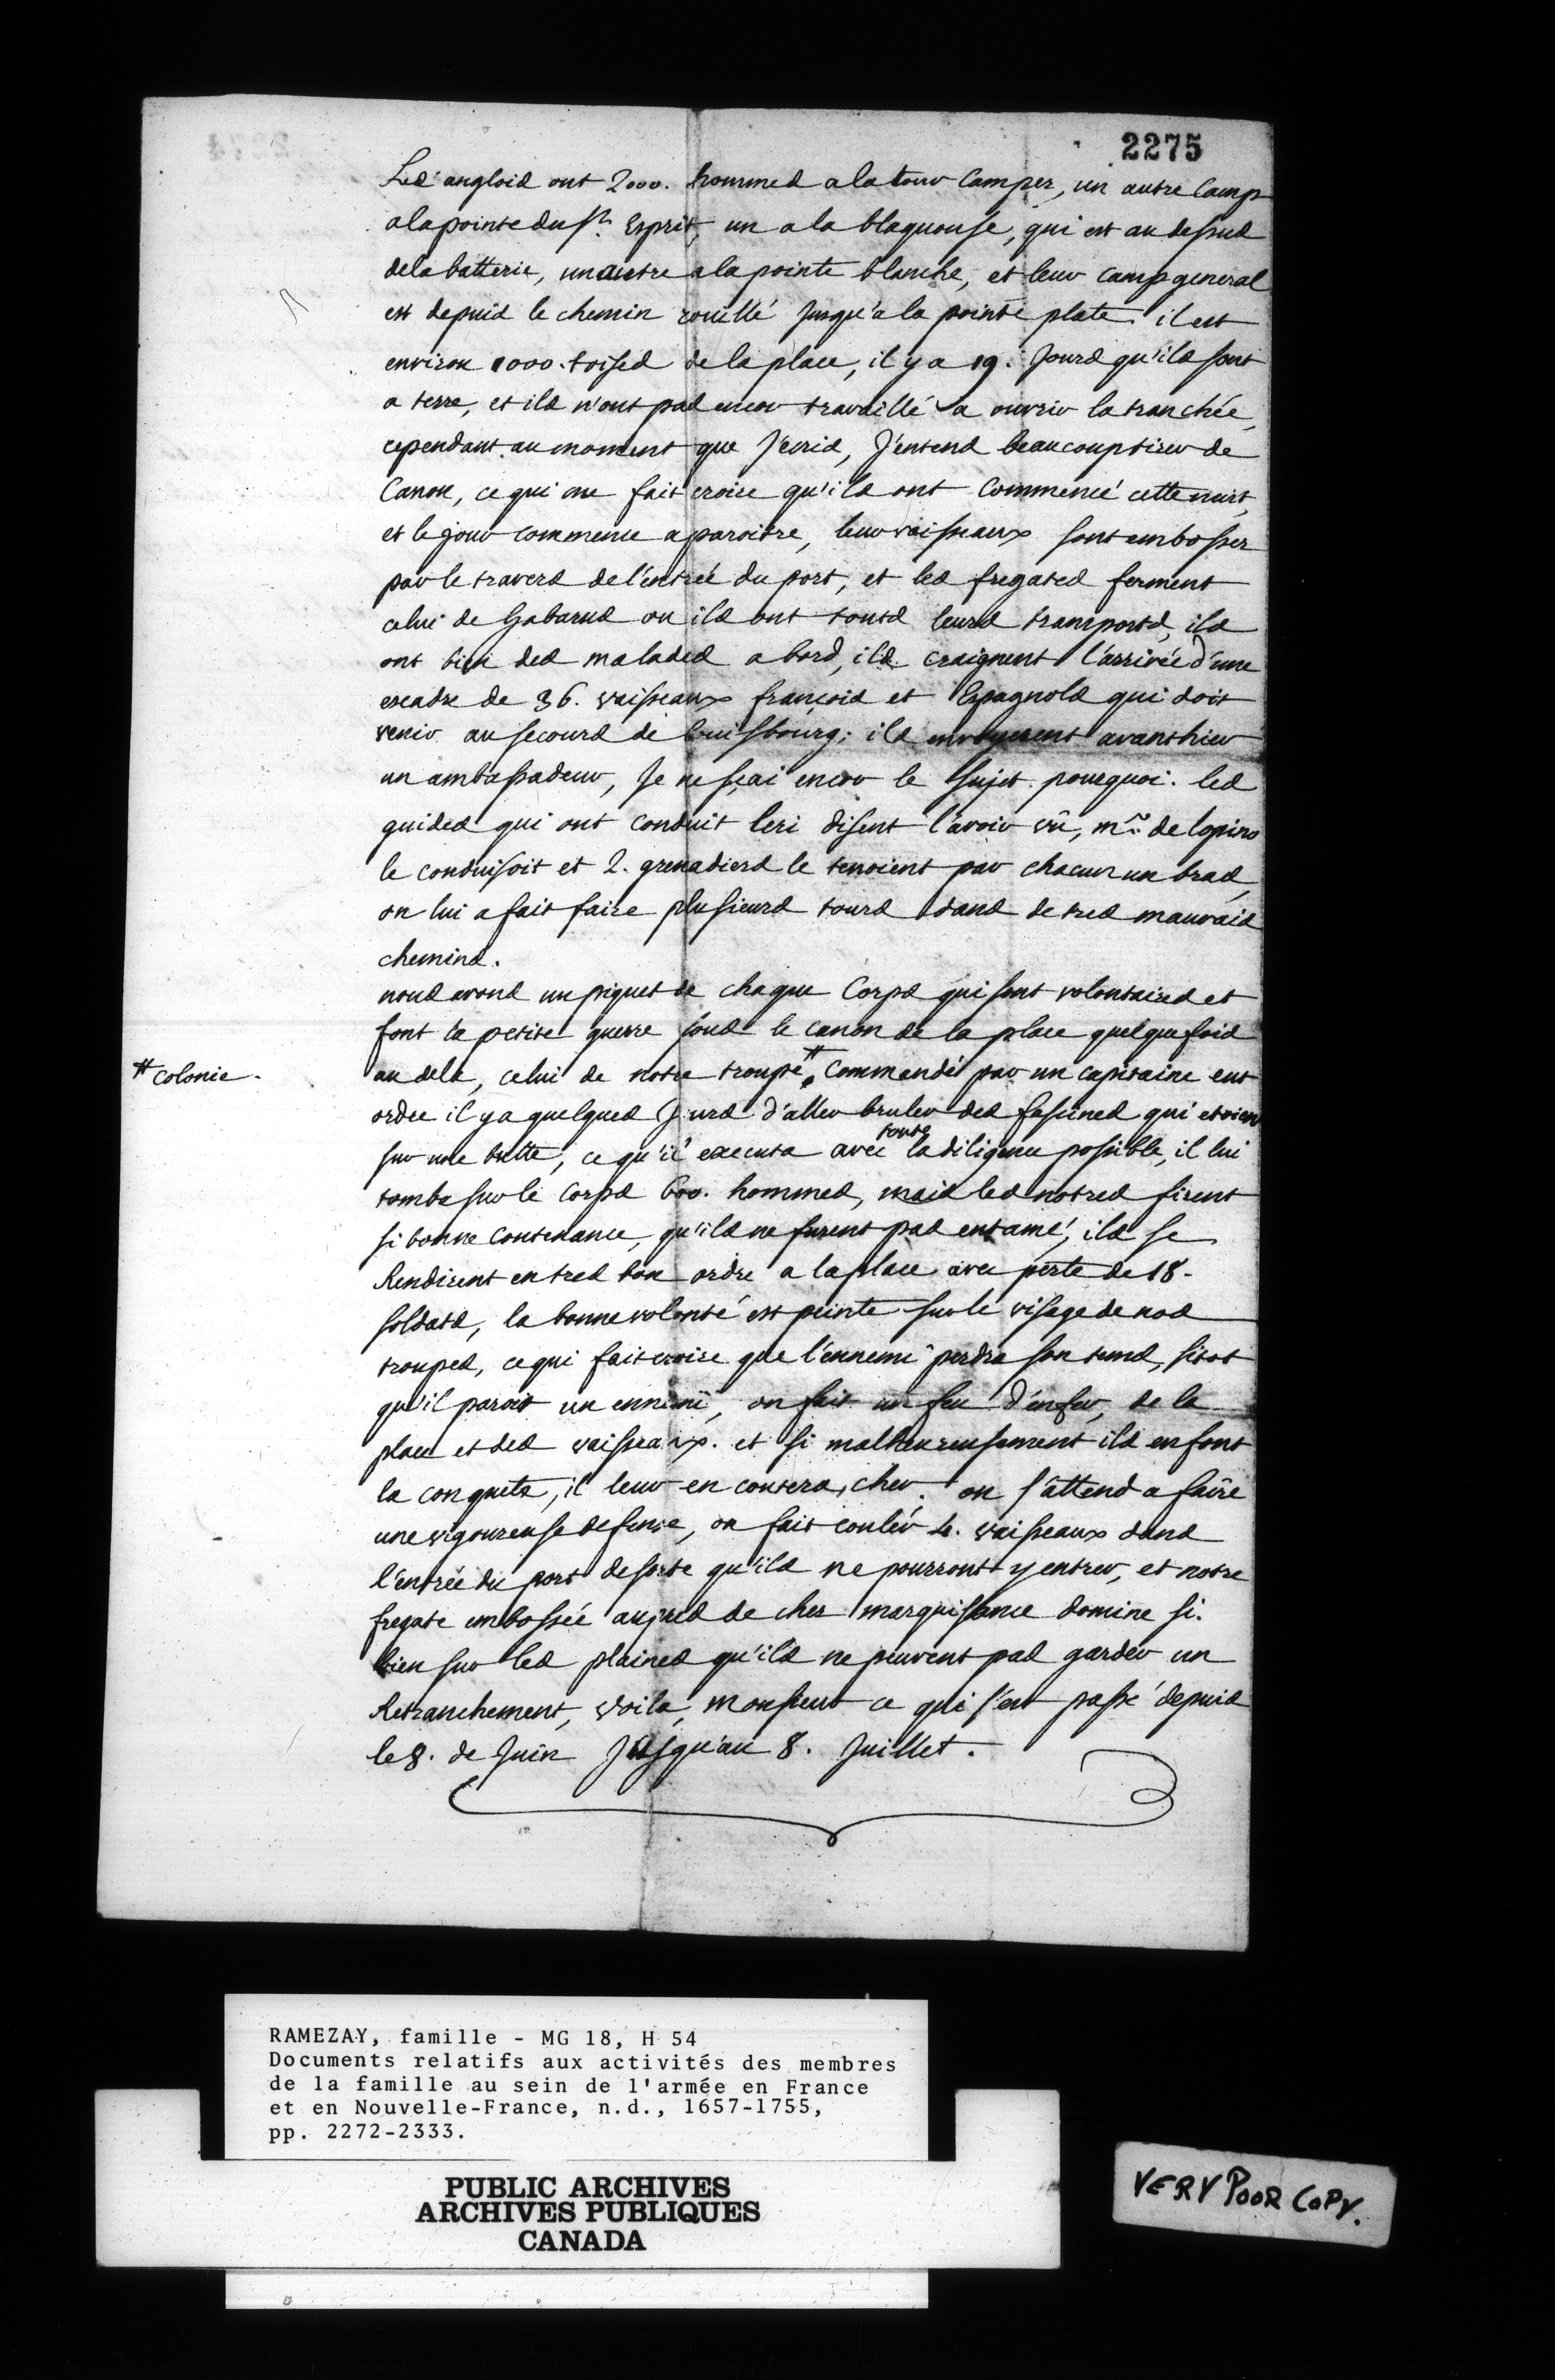 2275
Les anglois ont 2000. hommes a la tour Camper, un autre Camp
a la pointe du st. Esprit, un a la blaquouse, qui est au dessus
de la batterie, un autre a la pointe blanche, et leur camp general
est depuis le chemin rouillé jusqu'a la pointe plate il est
environ 1000. toises de la place, il y a 19. Jours qu'ils sont
a terre, et ils n'ont pas encor travaillé a ouvrir la tranchée,
cependant au moment que J'ecris, J'entend beaucoup tirer de
Canon, ce qui me fait croire qu'ils ont Commencé cette nuit,
et le jour commence a paroitre, leur vaisseaux sont embosser
par le travers de l'entrée du port, et les fregates ferment
celui de Gabarus ou ils ont touts leurs transports, ils
ont bien des malades a bord, ils craignent l'arrivée d'une
escadre de 36. vaisseaux françois et Espagnols qui doit
venir au secours de Louisbourg; ils envoyerent avanthier
un ambassadeur, Je ne sçai encor le sujet pourquoi. les
guides qui ont conduit leri disent l'avoir vû, mr. de lopino
le conduisoit et 2. grenadiers le tenoient par chacun un bras,
on lui a fait faire plusieurs tours dans de tres mauvais
chemins.
nous avons un piquet de chaque Corps qui sont volontaires et
font la petite guerre sous le canon de la place quelque fois
au dela, celui de notre troupe # Commandé par un capitaine eut
# Colonie.
ordre il y a quelques Jours d'aller bruler des fascines qui etoient
sur une butte, ce qu'il executa avec toute la diligence possible, il lui
tombe sur le Corps 600. hommes, mais les notres firent
si bonne Contenance, qu'ils ne furent pas entamé, ils se
Rendirent en tres bon ordre a la place avec perte de 18.
soldats, la bonne volonté est peinte sur le visage de nos
troupes, ce qui fait croire que l'ennemi perdra son tems, sitot
qu'il paroit un ennemi, on fait un feu d'enfer, de la
place et des vaisseaux. et si malheureusement ils en font
la conquete, il leur en coutera cher. on s'attend a faire
une vigoureuse defense, on fait couler 4. vaisseaux dans
l'entrée du port de sorte qu'ils ne pourront y entrer, et notre
fregate embossée aupres de cher marquisance domine si
bien sur les plaines qu'ils ne peuvent pas garder un
Retranchement, voila, monsieur ce qui s'est passé depuis
le 8. de Juin Jusqu'au 8. Juillet.
RAMEZAY, famille - MG 18, H 54
Documents relatifs aux activités des membres
de la famille au sein de l'armée en France
et en Nouvelle-France, n.d., 1657-1755,
pp. 2272-2333.
PUBLIC ARCHIVES
ARCHIVES PUBLIQUES
CANADA
VERY POOR COPY.